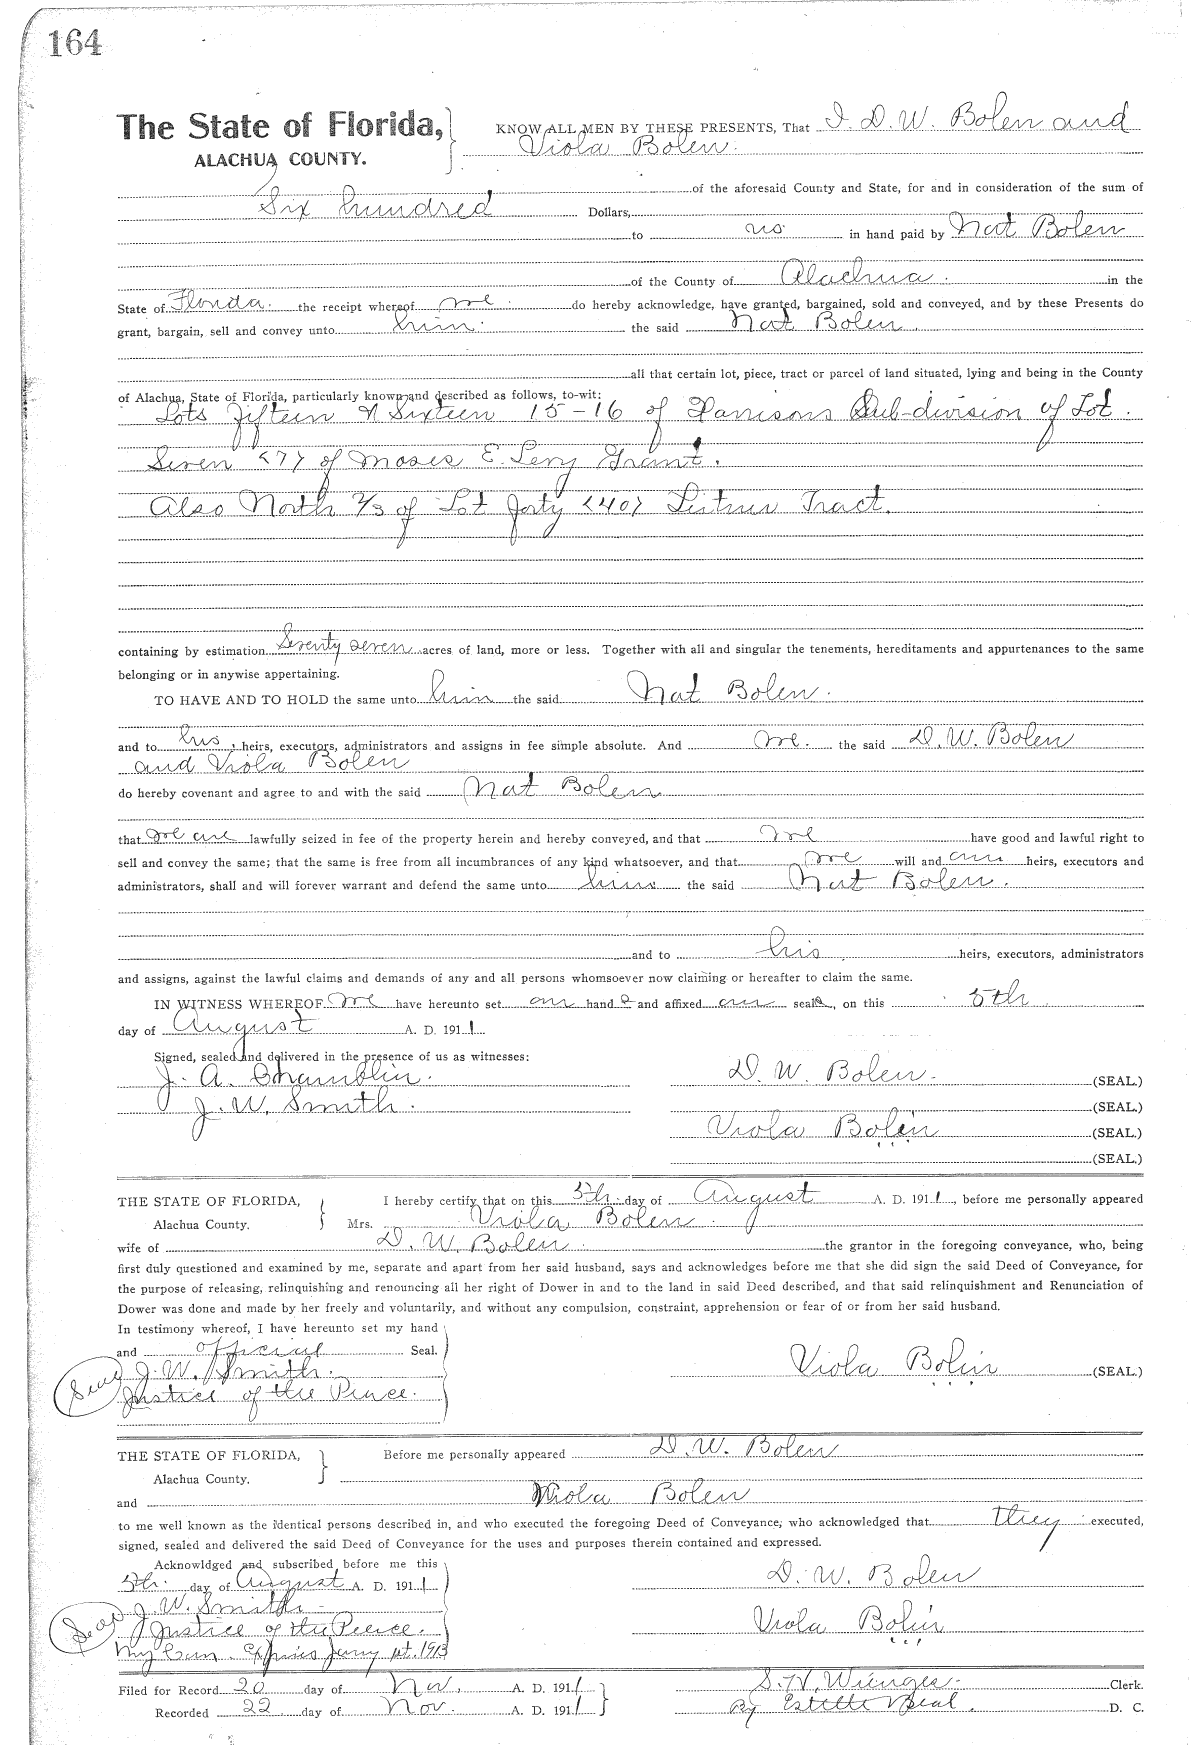 164
The State of Florida, KNOW ALL MEN BY THESE PRESENTS, That I. D. W. Bolen and
ALACHUA COUNTY. Viola Bolen.
of the aforesaid County and State, for and in consideration of the sum of
Six hundred Dollars,
to us in hand paid by Nat Bolen
of the County of Alachua. in the
State of Florida. the receipt whereof we do hereby acknowledge, have granted, bargained, sold and conveyed, and by these Presents do
grant, bargain, sell and convey unto him. the said Nat Bolen.
all that certain lot, piece, tract or parcel of land situated, lying and being in the County
of Alachua, State of Florida, particularly known and described as follows, to-wit:
Lots fifteen & Sixteen 15-16 of Harrisons Sub-division of Lot.
Seven <7> of Moses E. Levy Grant.
Also North 2/3 of Lot forty <40> Tract.
containing by estimation Seventy seven acres of land, more or less. Together with all and singular the tenements, hereditaments and appurtenances to the same
belonging or in anywise appertaining.
TO HAVE AND TO HOLD the same unto him the said Nat Bolen.
and to his, heirs, executors, administrators and assigns in fee simple absolute. And we. the said D. W. Bolen
and Viola Bolen
do hereby covenant and agree to and with the said Nat Bolen
that we are lawfully seized in fee of the property herein and hereby conveyed, and that we have good and lawful right to
sell and convey the same; that the same is free from all incumbrances of any kind whatsoever, and that we will and our heirs, executors and
administrators, shall and will forever warrant and defend the same unto him the said Nat Bolen.
and to his heirs, executors, administrators
and assigns, against the lawful claims and demands of any and all persons whomsoever now claiming or hereafter to claim the same.
IN WITNESS WHEREOF we have hereunto set our hand s and affixed our seals, on this 5th
day of August A. D. 1911
Signed, sealed and delivered in the presence of us as witnesses:
J. A. Chamblin. D. W. Bolen. (SEAL.)
J. W. Smith. (SEAL.)
Viola Bolin (SEAL.)
(SEAL.)
THE STATE OF FLORIDA, I hereby certify that on this 5th. day of August A. D. 1911, before me personally appeared
Alachua County. Mrs. Viola Bolen.
wife of D. W. Bolen. the grantor in the foregoing conveyance, who, being
first duly questioned and examined by me, separate and apart from her said husband, says and acknowledges before me that she did sign the said Deed of Conveyance, for
the purpose of releasing, relinquishing and renouncing all her right of Dower in and to the land in said Deed described, and that said relinquishment and Renunciation of
Dower was done and made by her freely and voluntarily, and without any compulsion, constraint, apprehension or fear of or from her said husband.
In testimony whereof, I have hereunto set my hand
and official Seal.
Seal J. W. Smith. Viola Bolin (SEAL.)
Justice of the Peace.
THE STATE OF FLORIDA, Before me personally appeared D. W. Bolen
Alachua County.
and Viola Bolen
to me well known as the identical persons described in, and who executed the foregoing Deed of Conveyance, who acknowledged that they executed,
signed, sealed and delivered the said Deed of Conveyance for the uses and purposes therein contained and expressed.
Acknowldged and subscribed before me this
5th. day of August A. D. 1911 D. W. Bolen
Seal J. W. Smith
Justice of the Peace. Viola Bolin
My Com. Expires Jany 1st. 1913
Filed for Record 20 day of Nov. A. D. 1911 S. H. Wienges. Clerk.
Recorded 22 day of Nov. A. D. 1911 By Estelle Beal. D. C.